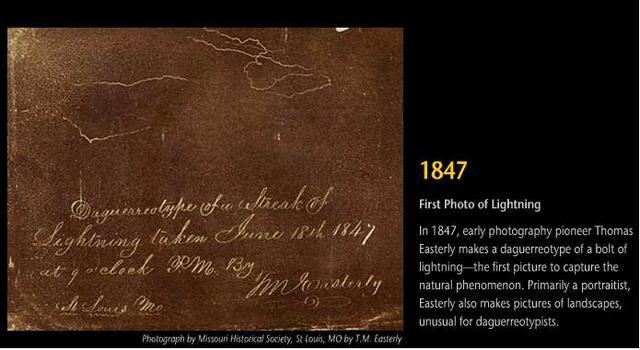 Daguerreotype of a Streak of
Lightning taken June 18th 1847
at 9 o'clock P.M. By
TM Easterly
St Louis Mo.
Photograph by Missouri Historical Society, St Louis, MO by T.M. Easterly
1847
First Photo of Lightning
In 1847, early photography pioneer Thomas
Easterly makes a daguerreotype of a bolt of
lightning—the first picture to capture the
natural phenomenon. Primarily a portraitist,
Easterly also makes pictures of landscapes,
unusual for daguerreotypists.